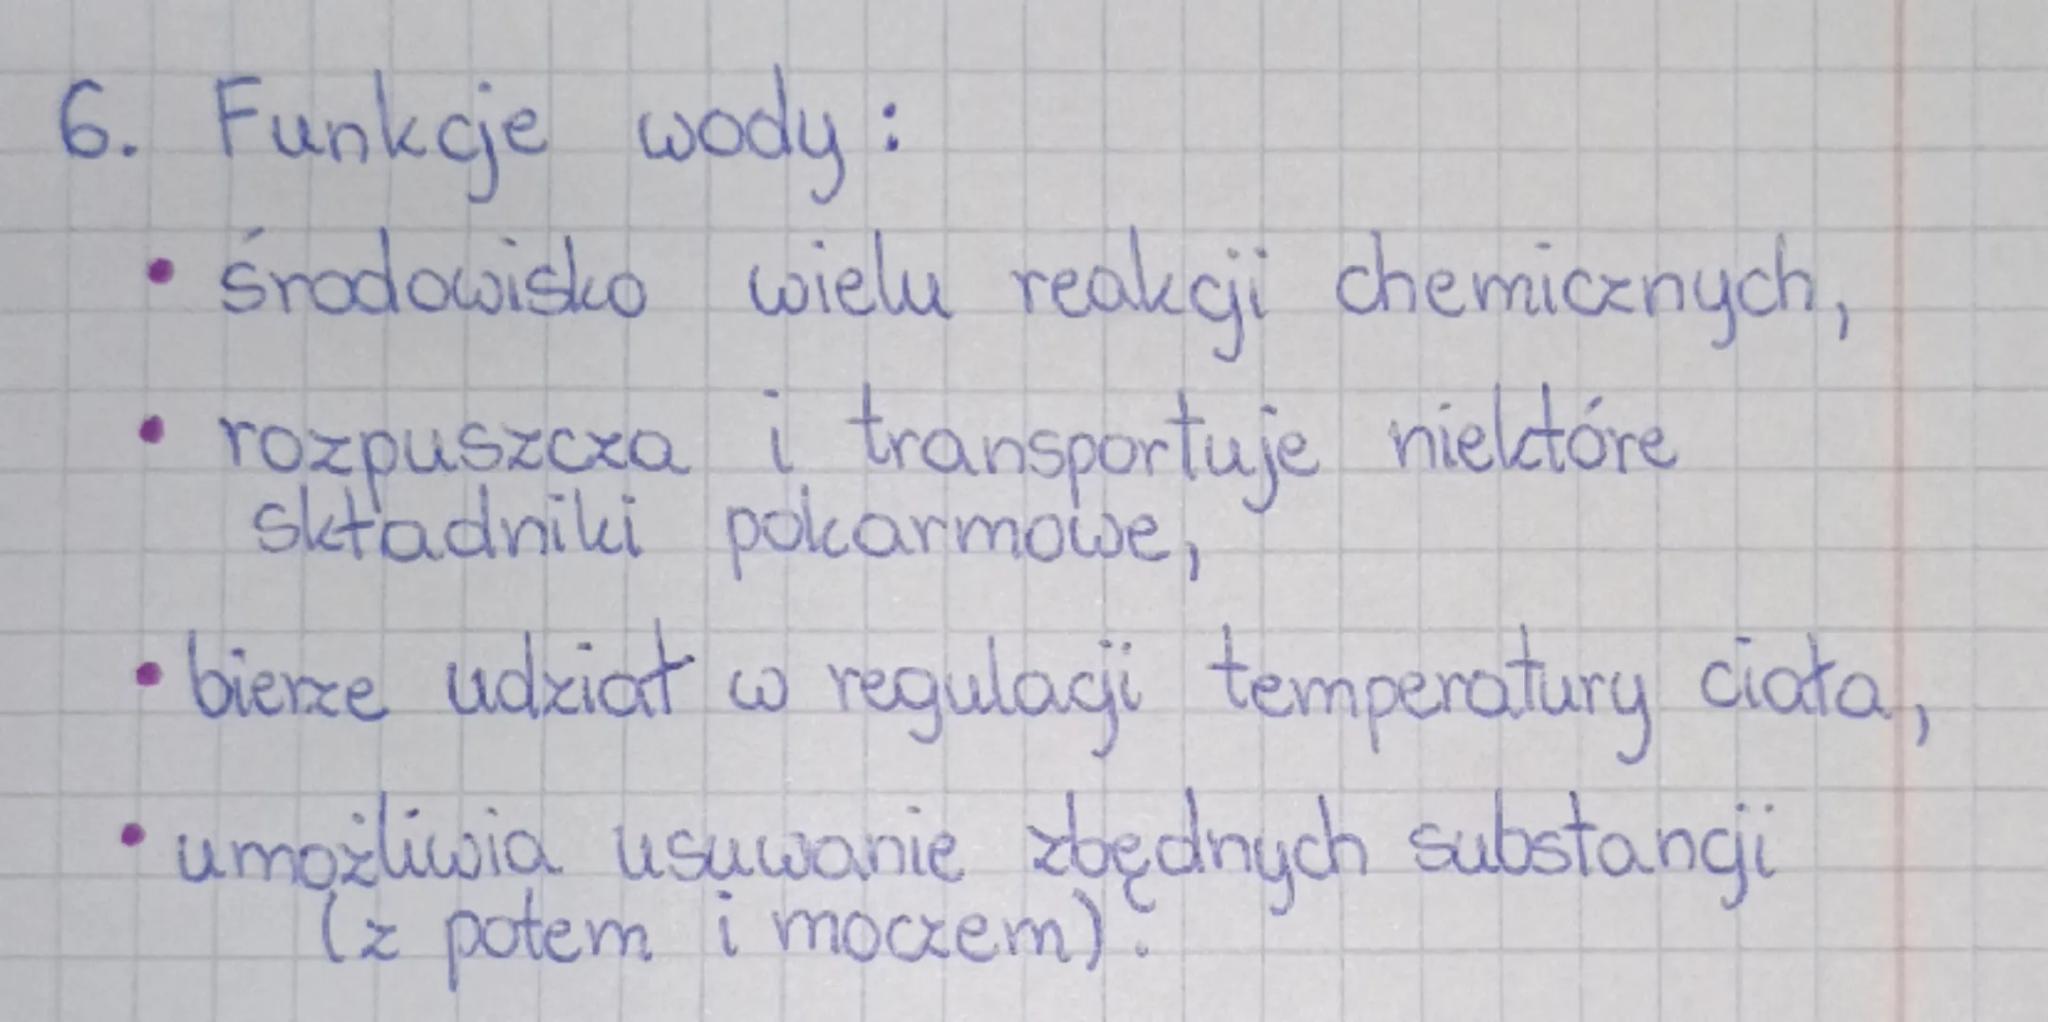 6. Funkcje wody:
• środowisko wielu reakcji chemicznych,
• rozpuszcza i transportuje niektóre
składniki pokarmowe,
• bierze udział w regulacji temperatury ciała,
• umożliwia usuwanie zbędnych substancji
(z potem i moczem).